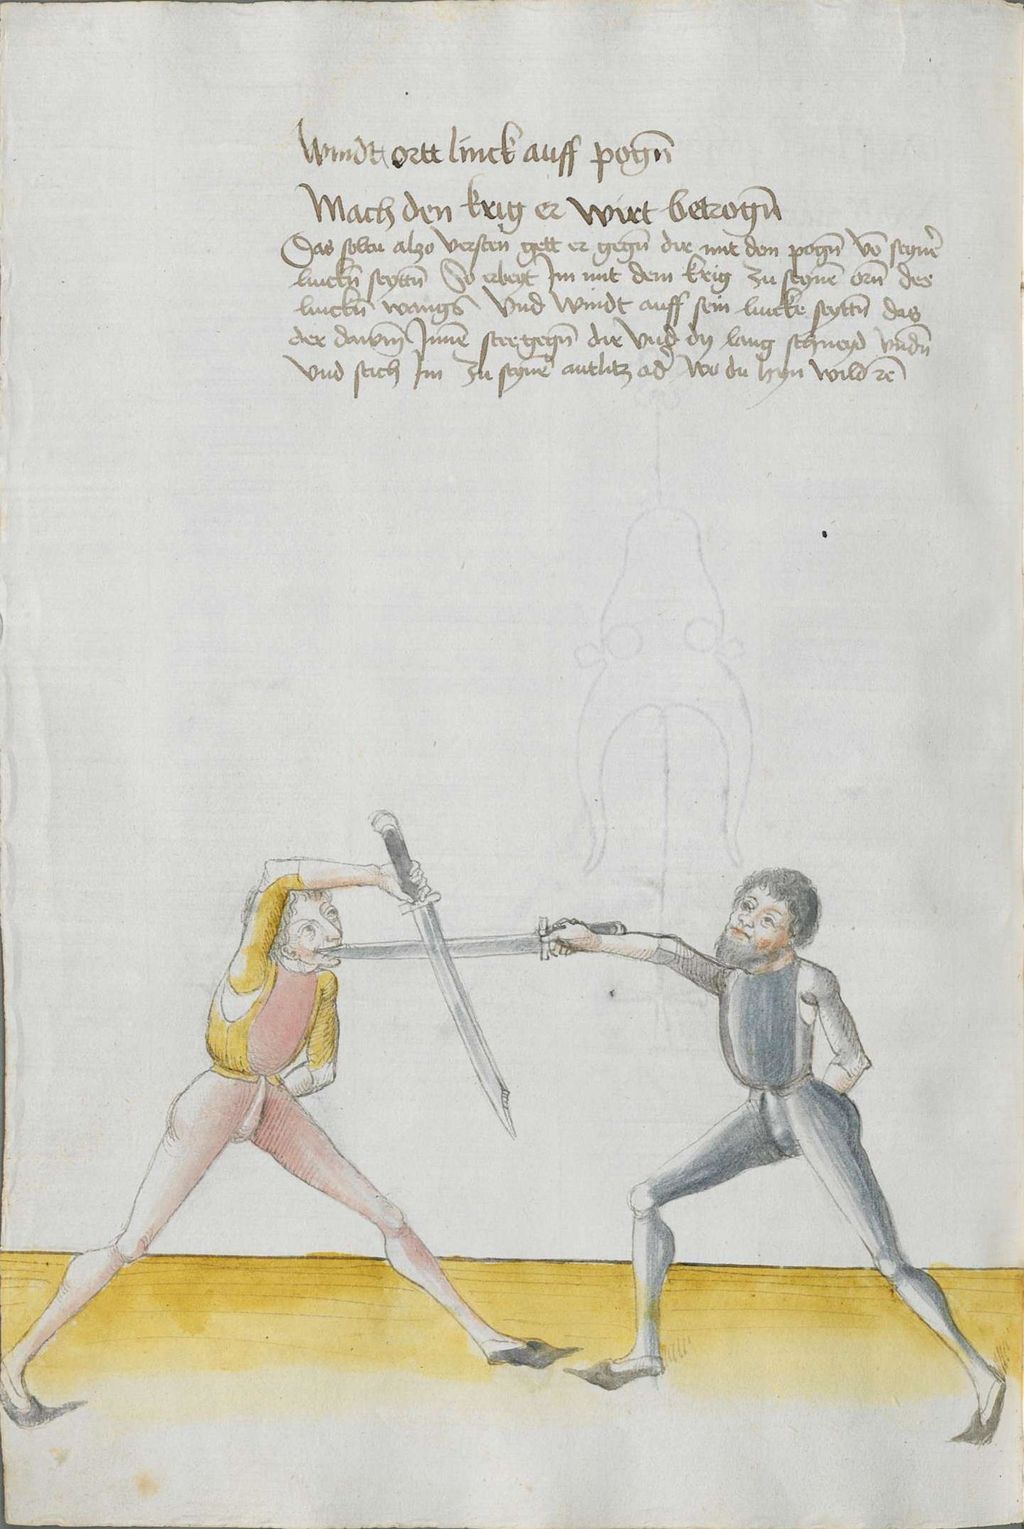 Windt ortt linck auff pogn̄
Mach den krig er wirt betrogn̄
Das soltu also versten gett er gegn̄ dir mit dem pogn̄ vō seyner
linckn̄ seyttn̄ So erbeyt Im mit dem krig zu seynē orn̄ des
linckn̄ wangs Vnd windt auff sein lincke seyttn̄ das
der dawm̄ Innē stee gegn̄ dir Vnd dy lang schneyd vndn̄
Vnd stich Im zu seynē antlitz ad wo du hyn wild